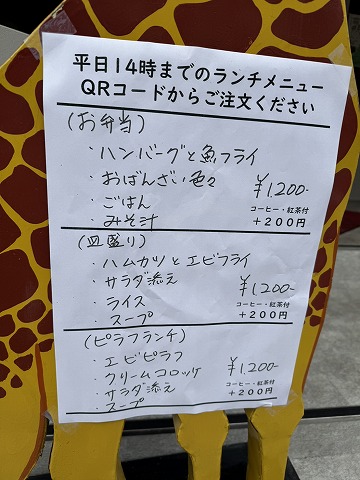 平日14時までのランチメニュー
QRコードからご注文ください
(お弁当)
・ハンバーグと魚フライ
・おばんざい色々
・ごはん
・みそ汁
¥1200-
コーヒー・紅茶付
+200円
(皿盛り)
・ハムカツとエビフライ
・サラダ添え
・ライス
・スープ
¥1200-
コーヒー・紅茶付
+200円
(ピラフランチ)
・エビピラフ
・クリームコロッケ
・サラダ添え
・スープ
¥1200-
コーヒー・紅茶付
+200円